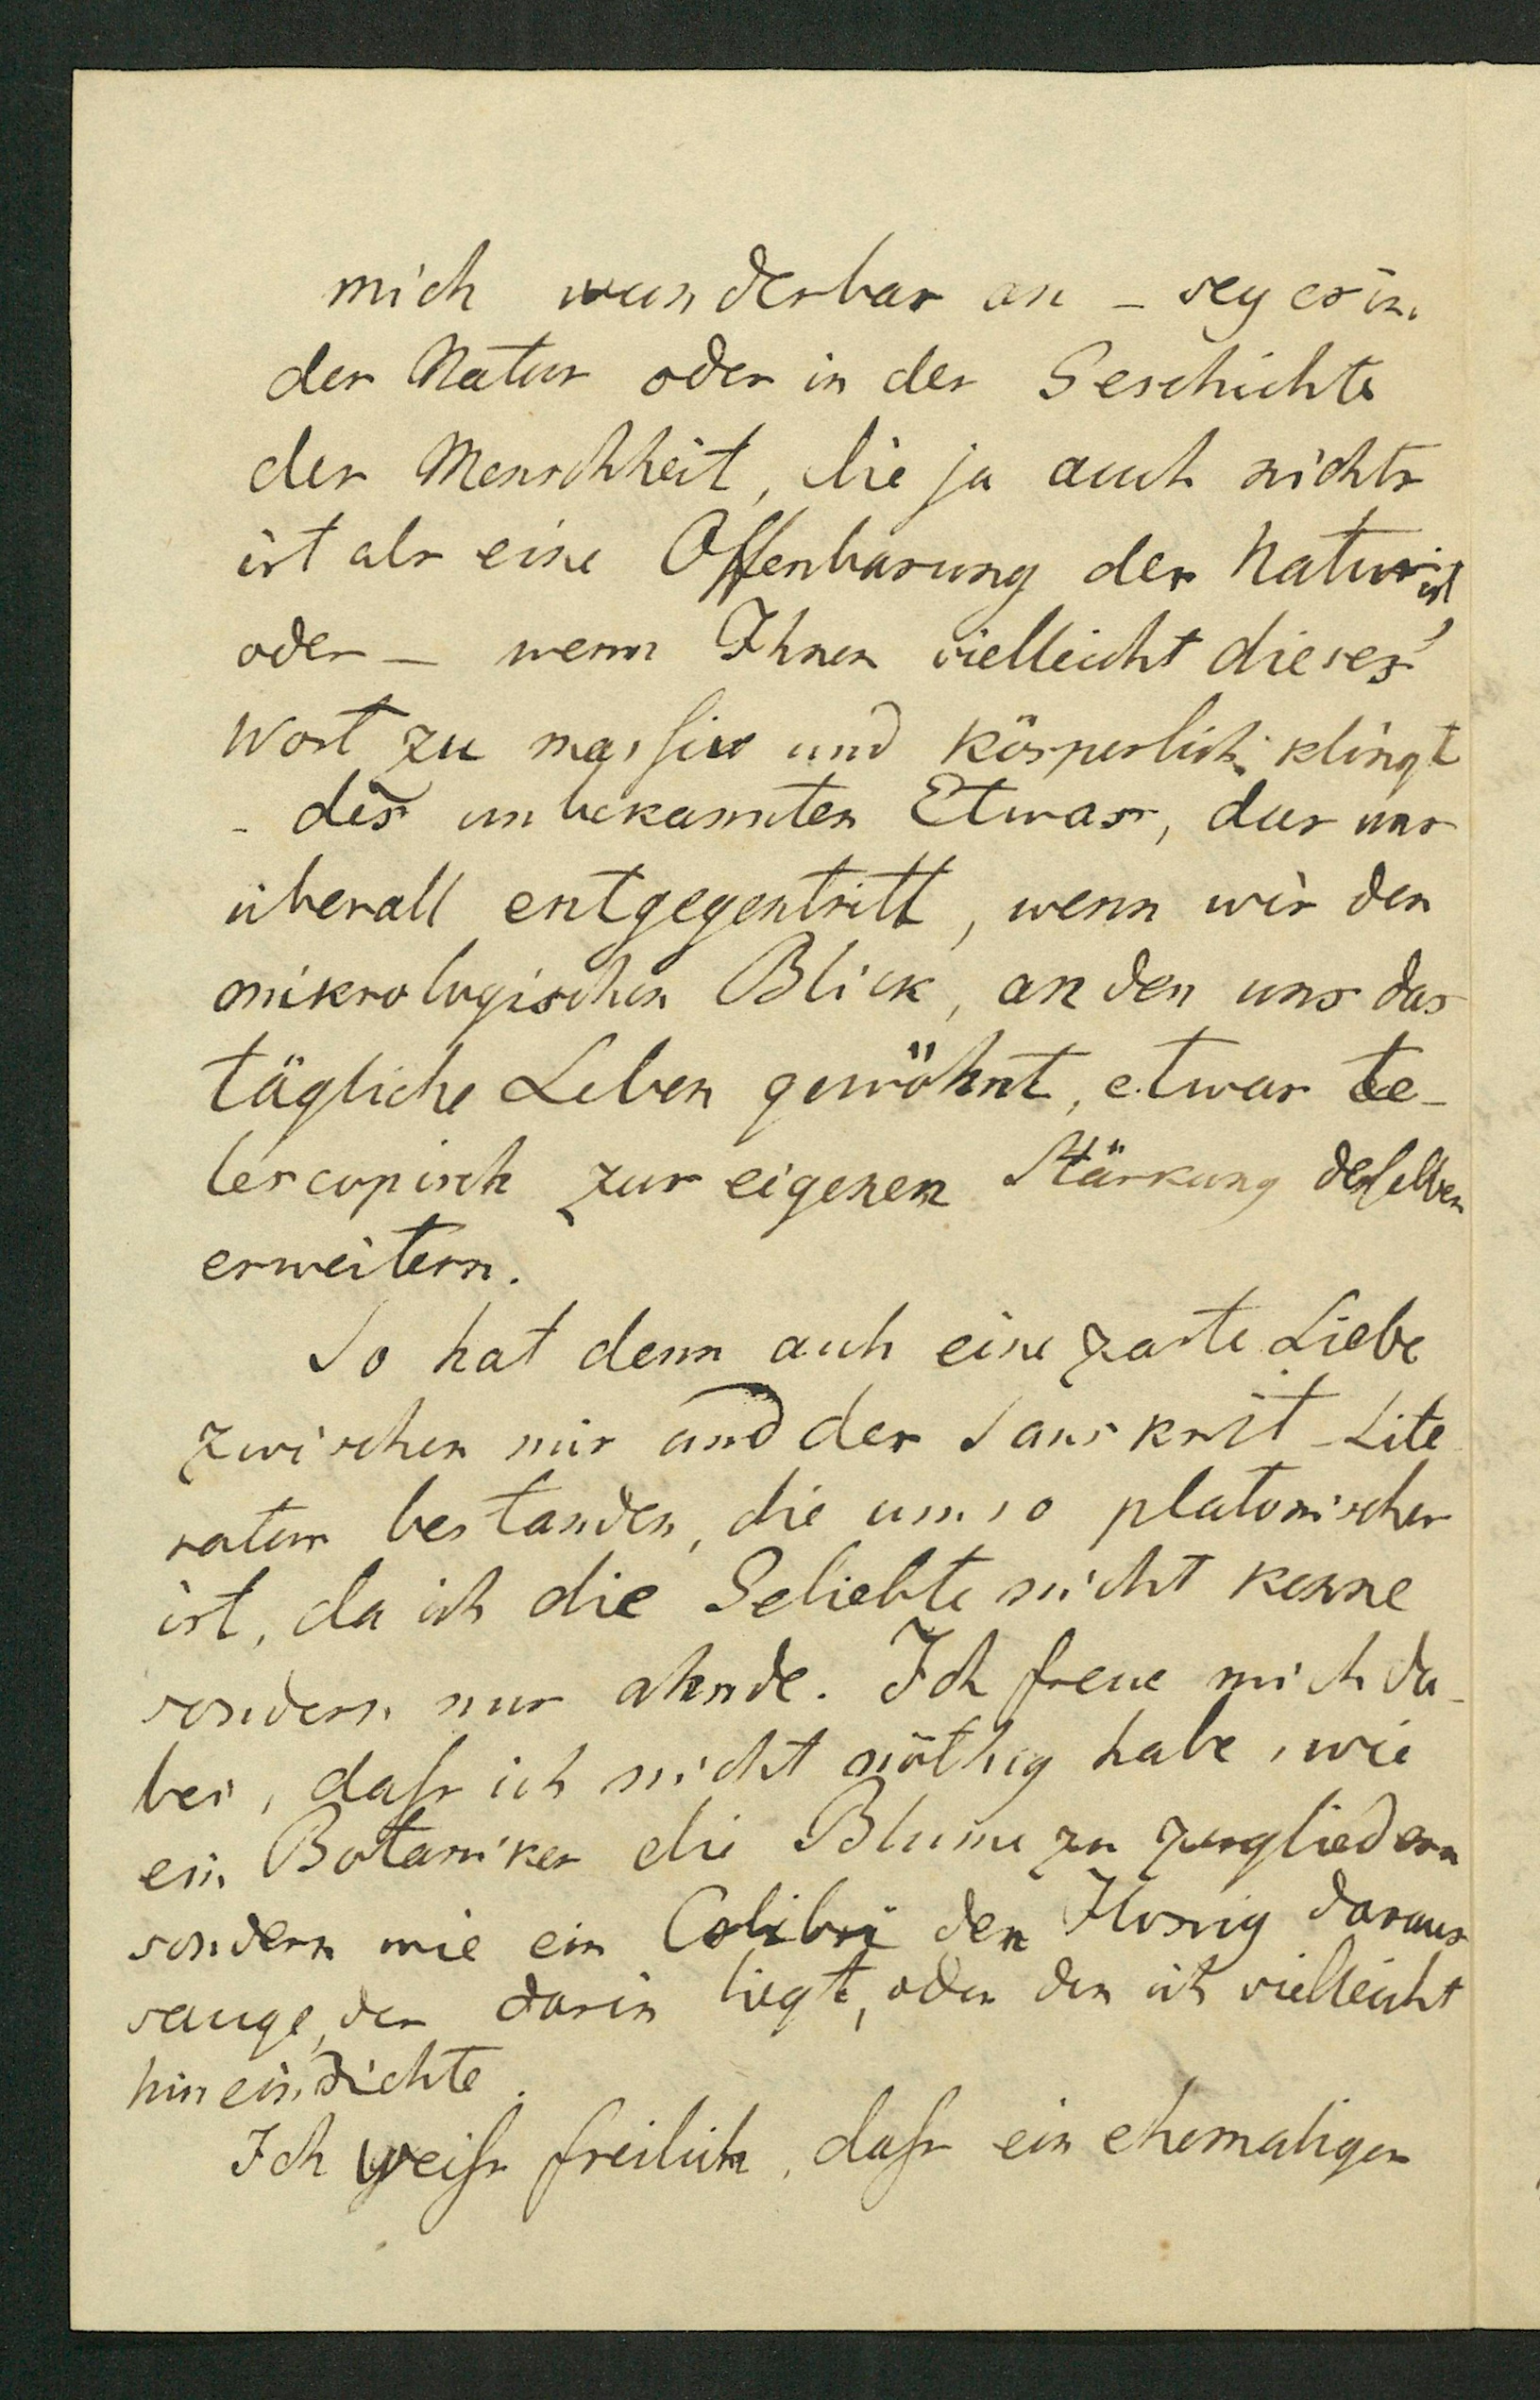 mich wunderbar an – sey es in
der Natur oder in der Geschichte
der Menschheit, die ja auch nichts
ist als eine Offenbarung der Natur ist
oder – wenn Ihnen vielleicht dieses
Wort zu massiv und körperlich klingt
– des unbekannten Etwas, das uns
überall entgegentritt, wenn wir den
mikrologischen Blick, an den uns das
tägliche Leben gewöhnt, etwas te-
lescopisch zur eigenen Stärkung desselben
erweitern.
So hat denn auch eine zarte Liebe
zwischen mir und der Sanskrit-Lite
ratur bestanden, die um so platonischer
ist, da ich die Geliebte nicht kenne
sondern nur ahnde. Ich freue mich da-
bei, dass ich nicht nöthig habe, wie
ein Botaniker die Blume zu zergliedern
sondern wie ein Colibri den Honig daraus
sauge, der darin liegt, oder den ich vielleicht
hineindichte.
Ich weiss freilich, dass ein ehemaliger